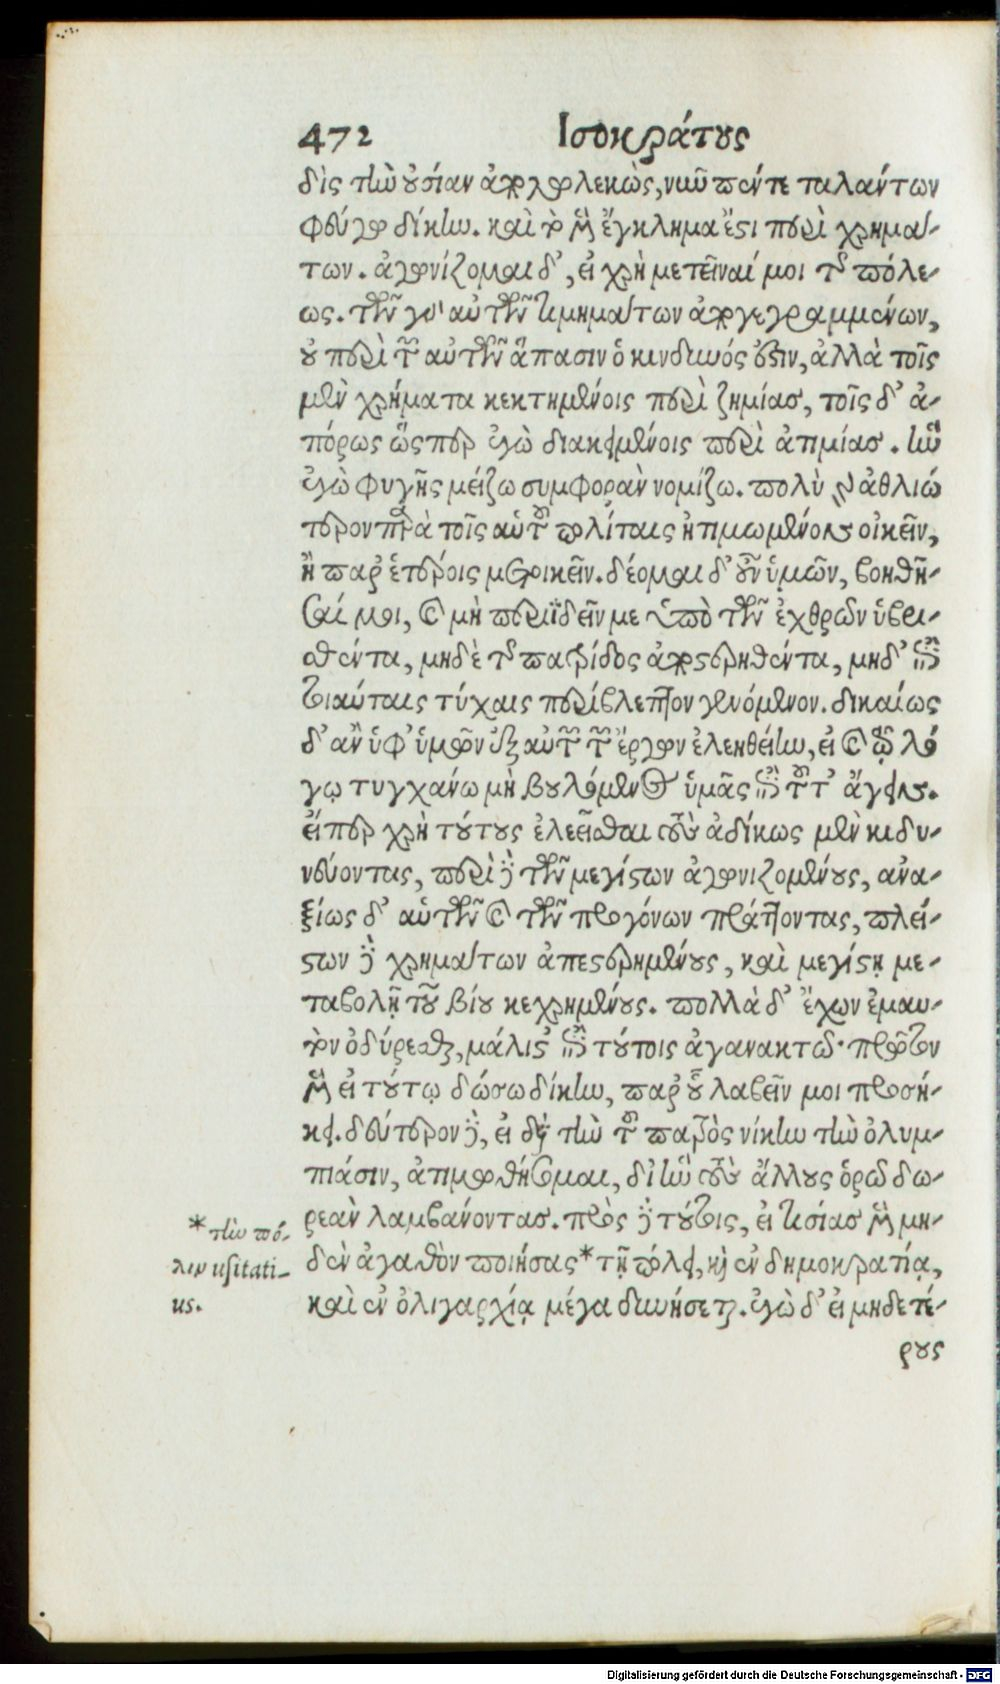 472 Ισοκράτους
δὶς τὴν οὐσίαν ἀπολωλεκὼς, νυνῦ πέντε ταλάντων
φεύγω δίκην. καὶ τὸ μὲν ἔγκλημα ἔστι περὶ χρημά-
των. ἀγωνίζομαι δ', εἰ χρὴ μετεῖναί μοι τῆς πόλε-
ως. τῶν γὰρ αὐτῶν τιμημάτων ἀπογεγραμμένων,
οὐ περὶ τῶν αὐτῶν ἅπασιν ὁ κινδυνός ἐστιν, ἀλλὰ τοῖς
μὲν χρήματα κεκτημένοις περὶ ζημίας, τοῖς δ' ἀ-
πόρως ὥσπερ ἐγὼ διακειμένοις περὶ ἀτιμίας. ἣν
ἐγὼ φυγῆς μείζω συμφορὰν νομίζω. πολὺ γὰρ ἀθλιώ
τερον παρὰ τοῖς αὑτοῦ πολίταις ἠτιμωμένον οἰκεῖν,
ἢ παρ' ἑτέροις μετοικεῖν. δέομαι δ' οὖν ὑμῶν, βοηθῆ-
σαί μοι, καὶ μὴ περιϊδεῖν με ὑπὸ τῶν ἐχθρῶν ὑβρι-
σθέντα, μηδὲ τῆς πατρίδος ἀποστερηθέντα, μηδ' ἐπὶ
τοιαύταις τύχαις περίβλεπτον γενόμενον. δικαίως
δ' ἂν ὑφ' ὑμῶν ἐξ αὐτῶν τῶν ἔργων ἐλεηθείην, εἰ καὶ τῷ λό
γῳ τυγχάνω μὴ βουλόμενος ὑμᾶς ἐπὶ τοῦτ' ἄγειν.
εἴπερ χρὴ τούτους ἐλεεῖσθαι τοὺς ἀδίκως μὲν κιδυ-
νεύοντας, περὶ δὲ τῶν μεγίστων ἀγωνιζομένους, ἀνα-
ξίως δ' αὑτῶν καὶ τῶν προγόνων πράττοντας, πλεί-
στων δὲ χρημάτων ἀπεστερημένους, καὶ μεγίστῃ με-
ταβολῇ τοῦ βίου κεχρημένους. πολλὰ δ' ἔχων ἐμαυ-
τὸν ὀδύρεσθαι, μάλιστ' ἐπὶ τούτοις ἀγανακτῶ· πρῶτον
μὲν εἰ τούτῳ δώσω δίκην, παρ' οὗ λαβεῖν μοι προσή-
κει. δεύτερον δὲ, εἰ διὰ τὴν τοῦ πατρὸς νίκην τὴν ὀλυμ-
πιάσιν, ἀτιμωθήσομαι, δι' ἣν τοὺς ἄλλους ὁρῶ δω-
ρεὰν λαμβάνοντας. πρὸς δὲ τούτοις, εἰ τισίας μὲν μη-
δὲν ἀγαθὸν ποιήσας* τῇ πόλει, καὶ ἐν δημοκρατίᾳ,
καὶ ἐν ὀλιγαρχίᾳ μέγα δυνήσεται. ἐγὼ δ' εἰ μηδετέ-
ρους
* τὴν πό-
λιν usitati-
us.
Digitalisierung gefördert durch die Deutsche Forschungsgemeinschaft - DFG